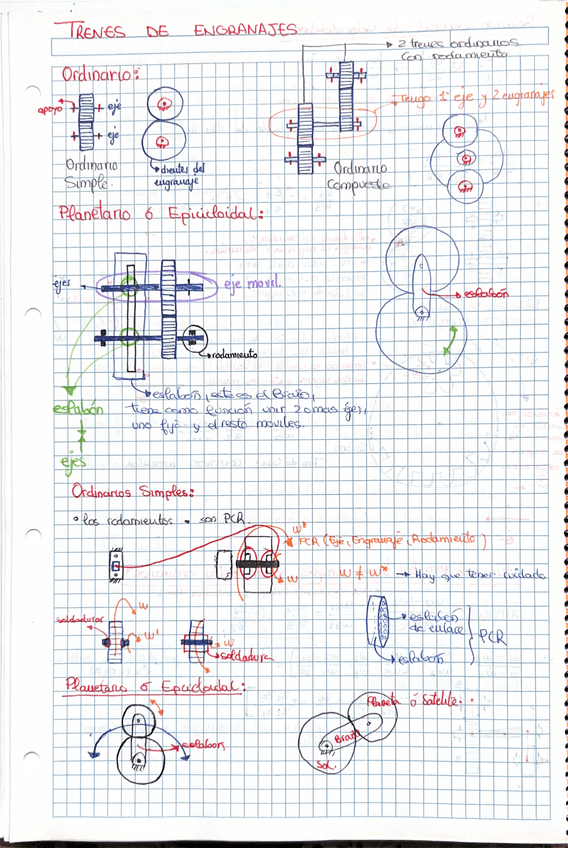 TRENES DE ENGRANAJES
2 trenes ordinarios
con rodamiento
Ordinario:
apoyo
eje
eje
Tengo 1 eje y 2 engranajes
Ordinario
Simple.
dientes del
engranaje
Ordinario
Compuesto
Planetario ó Epicicloidal:
ejes
eje movil.
eslabón
rodamiento
eslabón, este es el Brazo,
tiene como función unir 2 o mas ejes,
uno fijo y el resto moviles.
eslabón
ejes
Ordinarios Simples:
los rodamientos son PCR.
w*
PCR (Eje, Engranaje, Rodamiento)
w
w ≠ w* → Hay que tener cuidado
soldaduras
w
w'
w
soldadura
eslabón
de enlace
PCR
eslabón
Planetario ó Epicicloidal:
Planeta ó Satelite.
eslabon
Brazo
Sol.